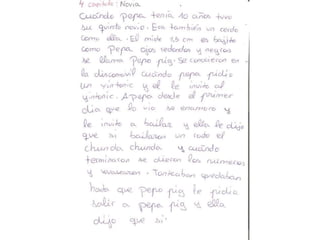 4 capitulo: Novio
Cuándo Pepa tenia 10 años tuvo
su quinto novio. Era también un cerdo
como ella. El mide 35 cm es bajito
como Pepa ojos redondos y negros
se llama Pepo pig. Se conocieron en
la discomovil cuándo pepa pidio
un yintonic y el le invito al
yintonic. A pepa desde el primer
dia que lo vio se enamoro y
le invito a bailar y ella le dijo
que si bailaron un rato el
chunda chunda y cuándo
terminaron se dieron los números
y
hasta que pepo pig le pidio
salir a pepa pig y ella
dijo que si